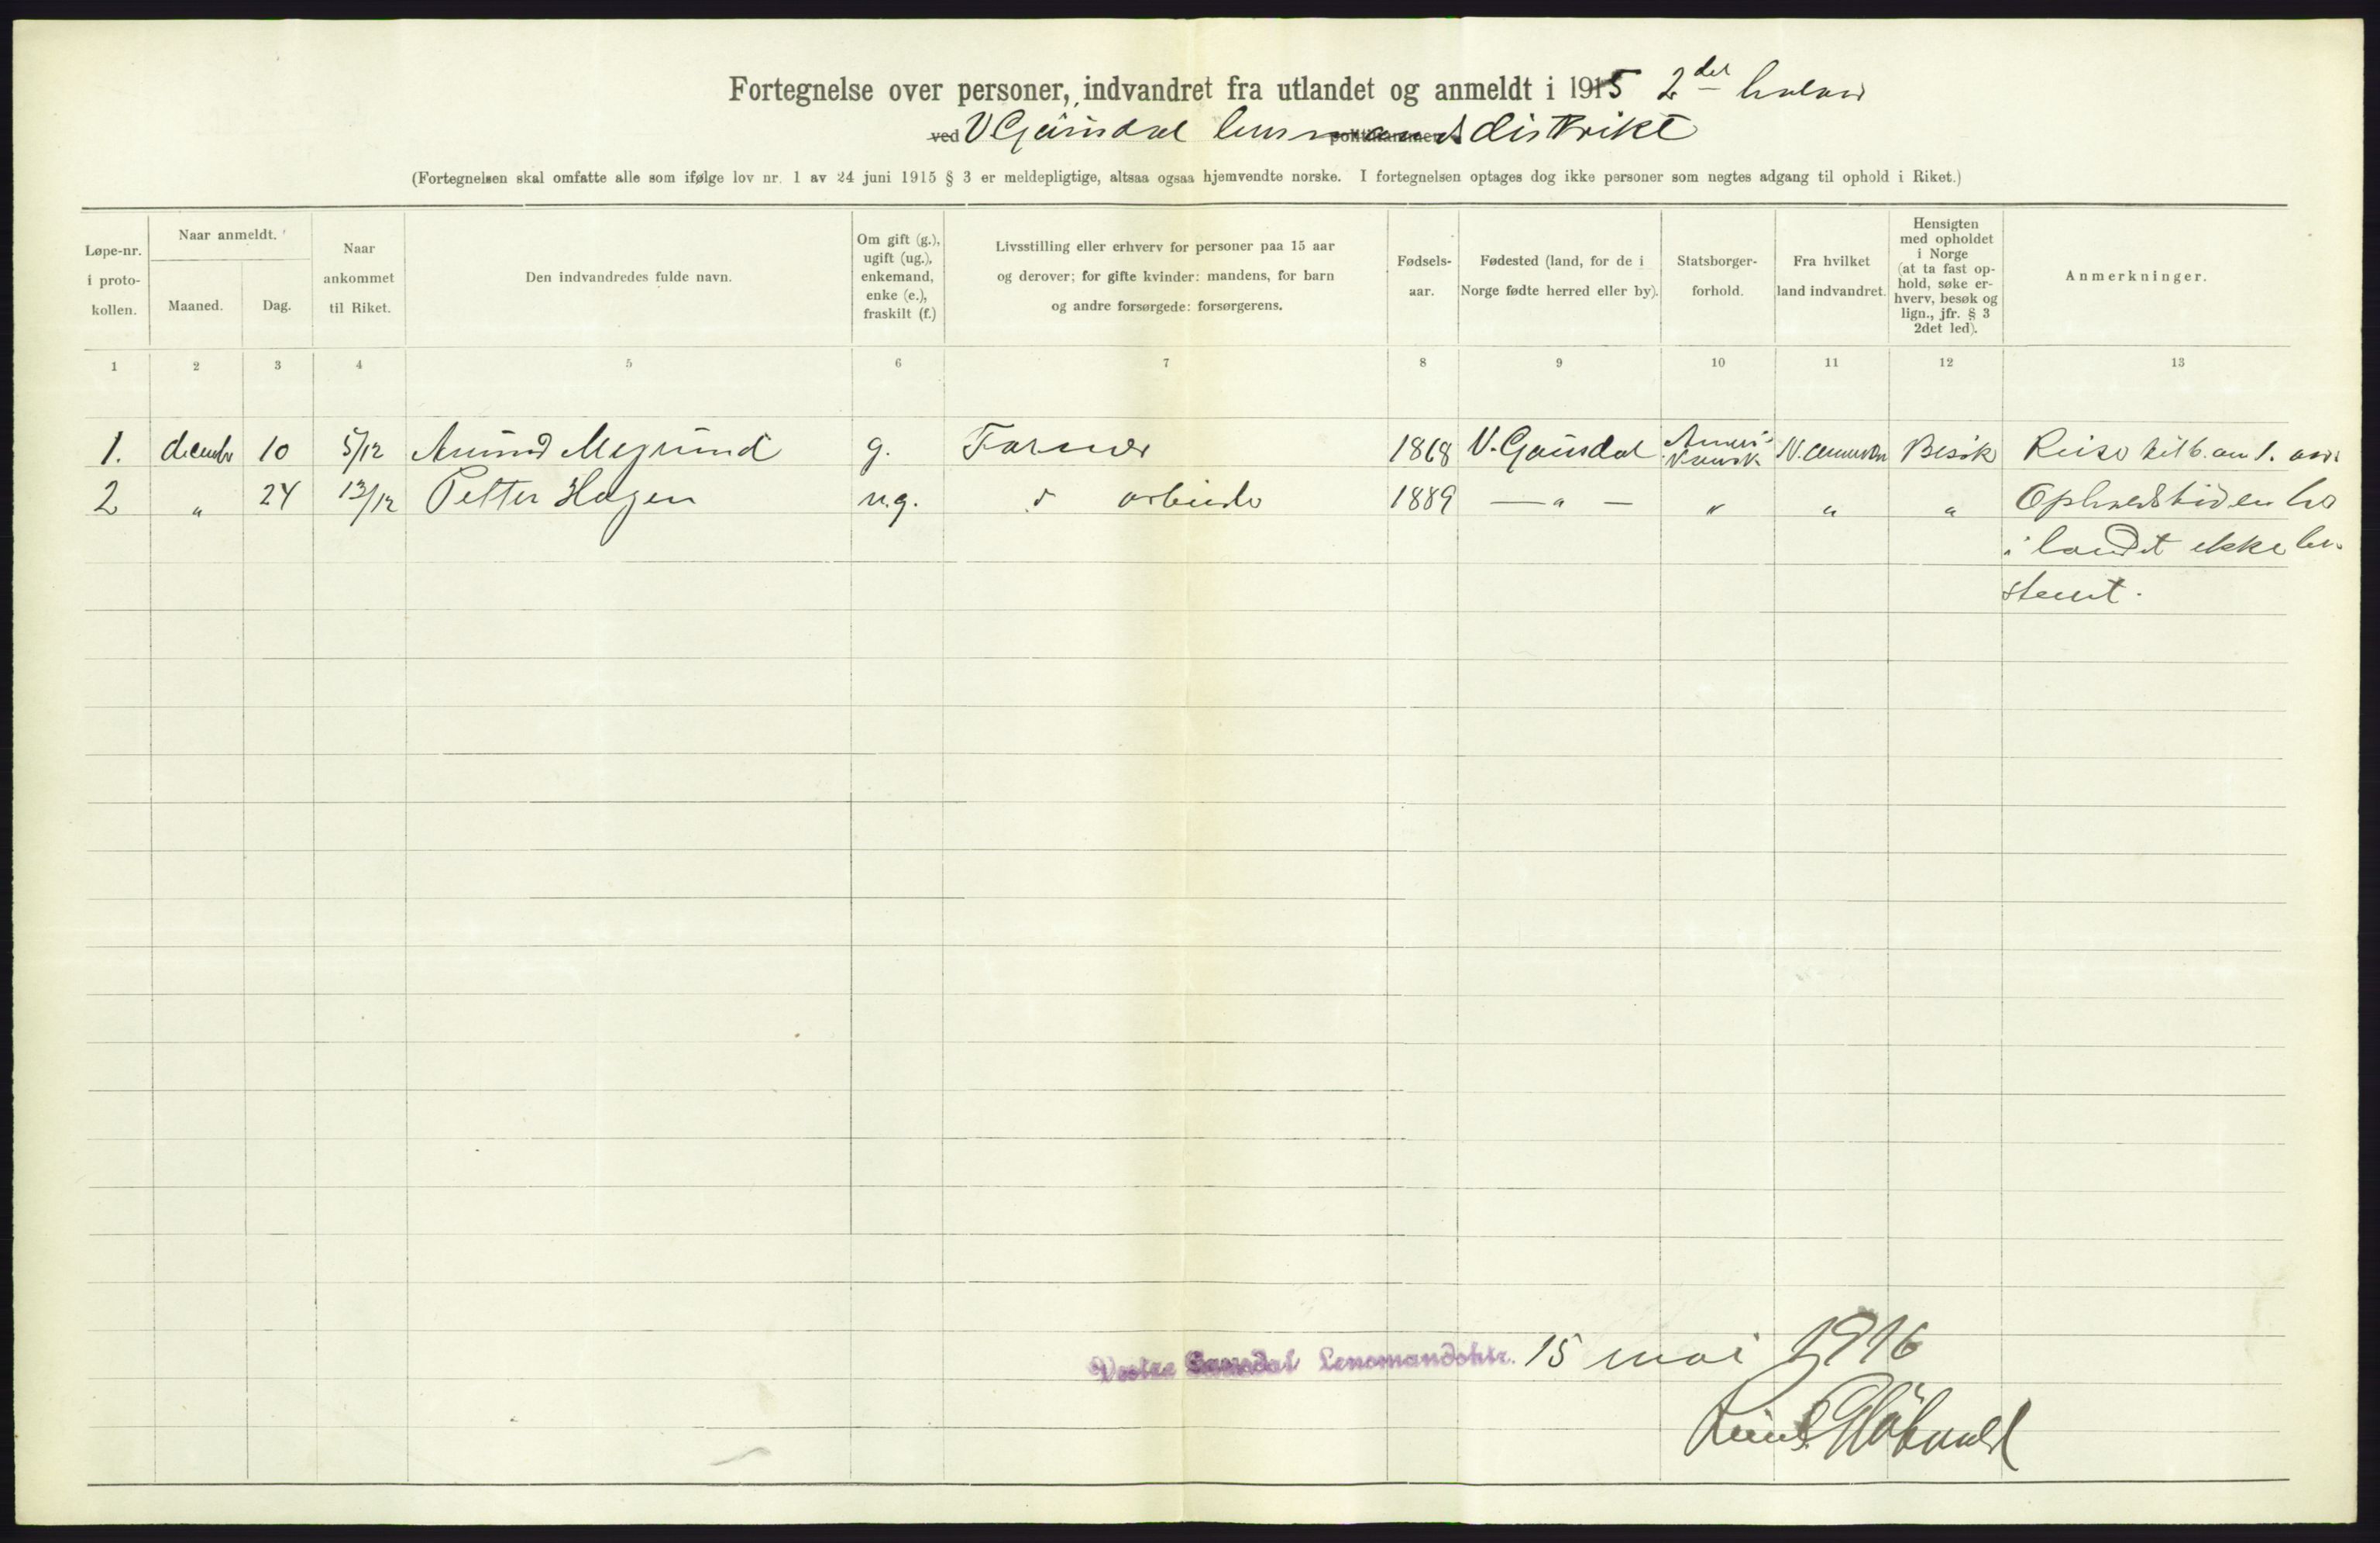 Fortegnelse over personer, indvandret fra utlandet og anmeldt i 1915 2det halvaar
ved V Gausdal lensmandsdistrikt
(Fortegnelsen skal omfatte alle som ifølge lov nr. 1 av 24 juni 1915 § 3 er meldepligtige, altsaa ogsaa hjemvendte norske. I fortegnelsen optages dog ikke personer som negtes adgang til ophold i Riket.)
Løpe-nr. i proto-kollen.
Naar anmeldt.
Maaned.
Dag.
Naar ankommet til Riket.
Den indvandredes fulde navn.
Om gift (g.), ugift (ug.), enkemand, enke (e.), fraskilt (f.)
Livsstilling eller erhverv for personer paa 15 aar og derover; for gifte kvinder: mandens, for barn og andre forsørgede: forsørgerens.
Fødsels-aar.
Fødested (land, for de i Norge fødte herred eller by).
Statsborger-forhold.
Fra hvilket land indvandret.
Hensigten med opholdet i Norge (at ta fast op-hold, søke er-hverv, besøk og lign., jfr. § 3 2det led).
Anmerkninger.
1 2 3 4 5 6 7 8 9 10 11 12 13
1. decembr 10 5/12 Amund Megrund g. Farmer 1868 V. Gausdal Ameri-kansk N. Amerika Besök Reise til b. am 1.
2 " 24 13/12 Petter Hagen ug. arbeider 1889 — " — " " " Opholdstiden her
i landet ikke be-
stemt.
Vestre Gausdal Lensmandsktr. 15 mai 1916